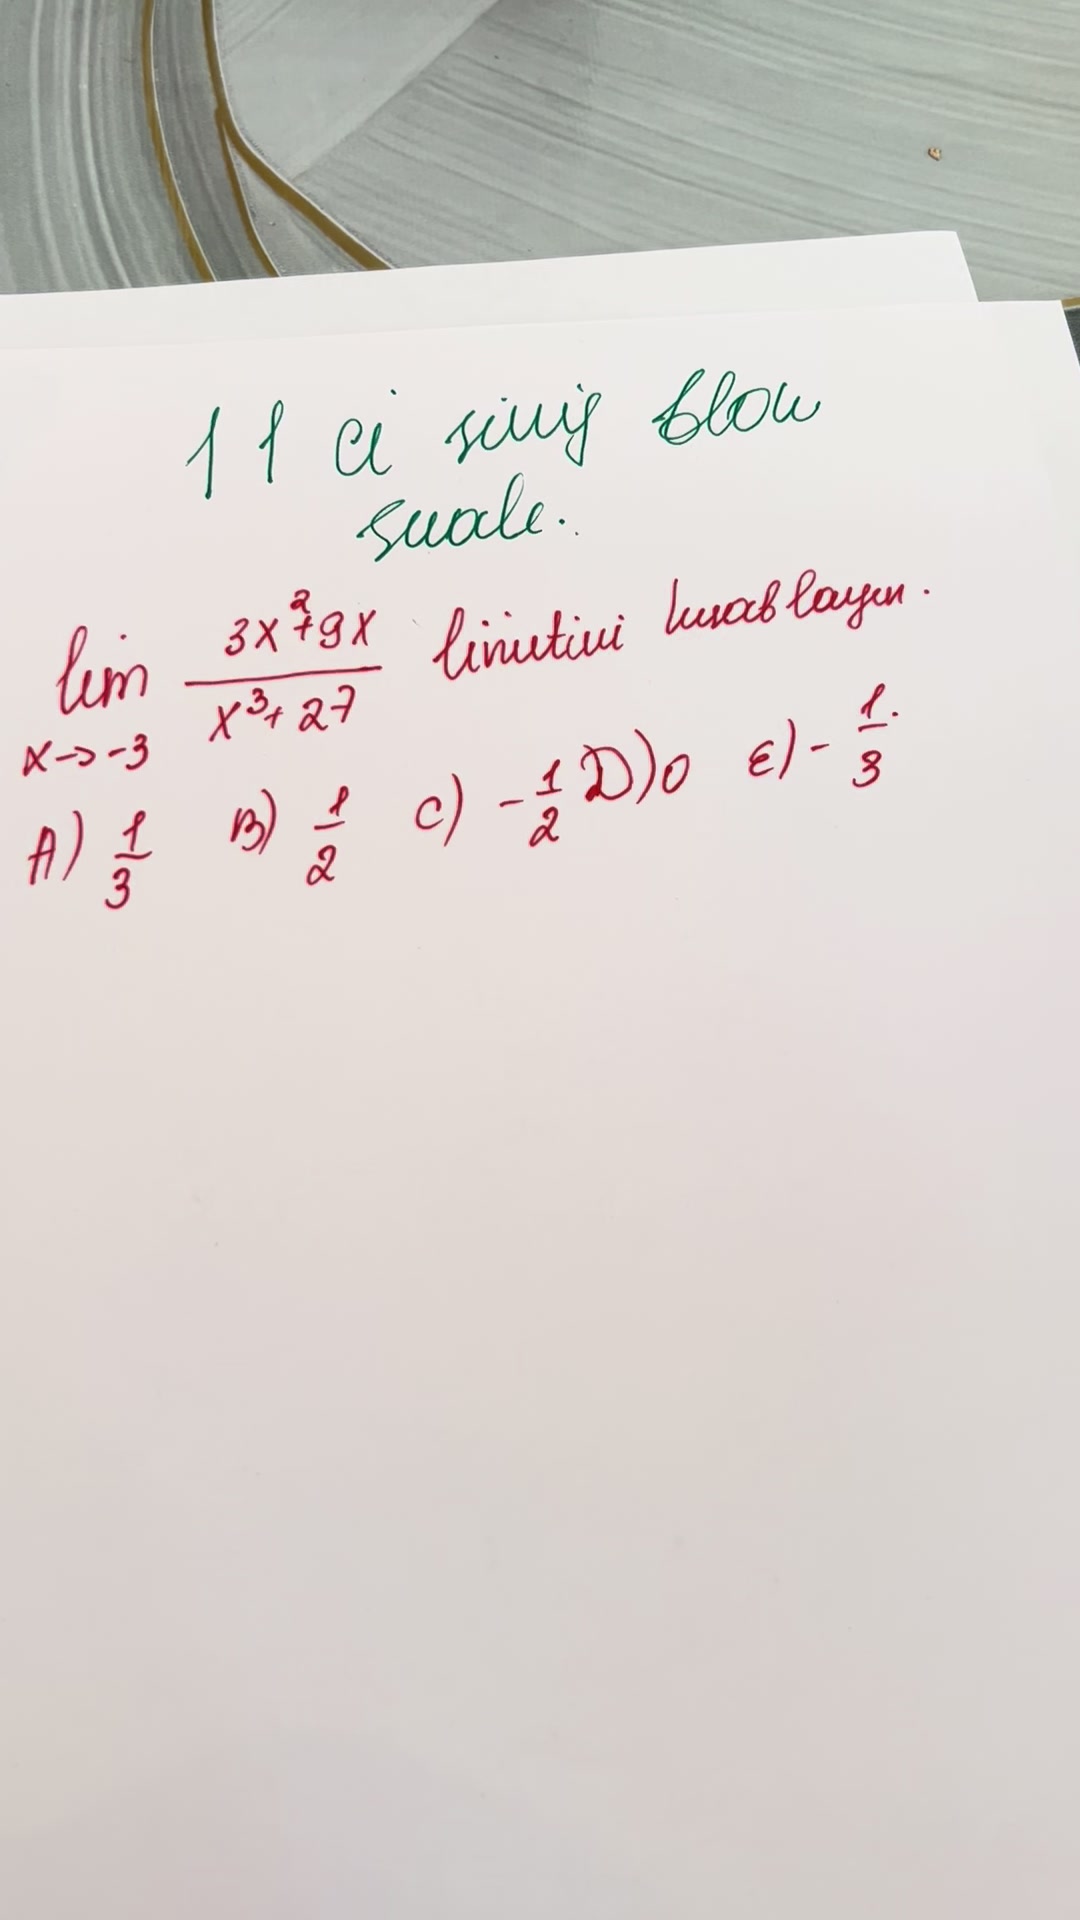 11 ci sinif blok
suali.
lim x→-3 (3x²+9x)/(x³+27) limitini hesablayın.
A) 1/3 B) 1/2 C) -1/2 D) 0 E) -1/3.